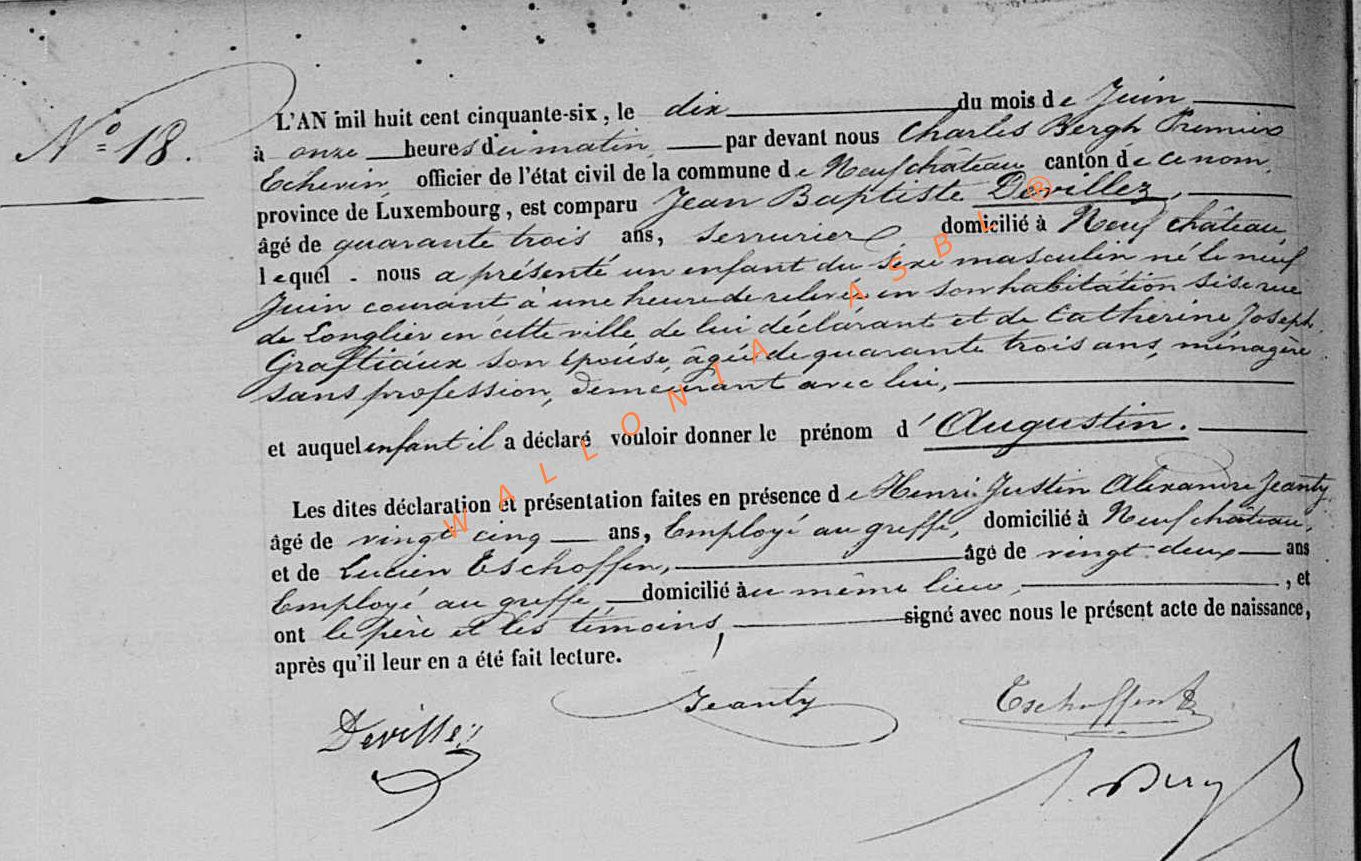 N° 18.
L'AN mil huit cent cinquante-six, le dix du mois de Juin
à onze heures du matin par devant nous Charles Bergh Premier
Echevin officier de l'état civil de la commune de Neufchâteau canton de ce nom,
province de Luxembourg, est comparu Jean Baptiste Devillez,
âgé de quarante trois ans, serrurier domicilié à Neufchâteau,
lequel nous a présenté un enfant du sexe masculin né le neuf
Juin courant à une heure de relevée en son habitation sise rue
de Longlier en cette ville de lui déclarant et de Catherine Joseph
Graftiaux son épouse, âgée de quarante trois ans, ménagère
sans profession, demeurant avec lui,
et auquel enfant il a déclaré vouloir donner le prénom d'Augustin.
Les dites déclaration et présentation faites en présence de Henri Justin Alexandre Jeanty
âgé de vingt cinq ans, Employé au greffe, domicilié à Neufchâteau,
et de Lucien Eschoffen, âgé de vingt-deux ans
Employé au greffe domicilié au même lieu, , et
ont le père et les témoins, signé avec nous le présent acte de naissance,
après qu'il leur en a été fait lecture.
Jeanty Tschoffen
Devillez
Bergh
WALLONIA ASBL ®